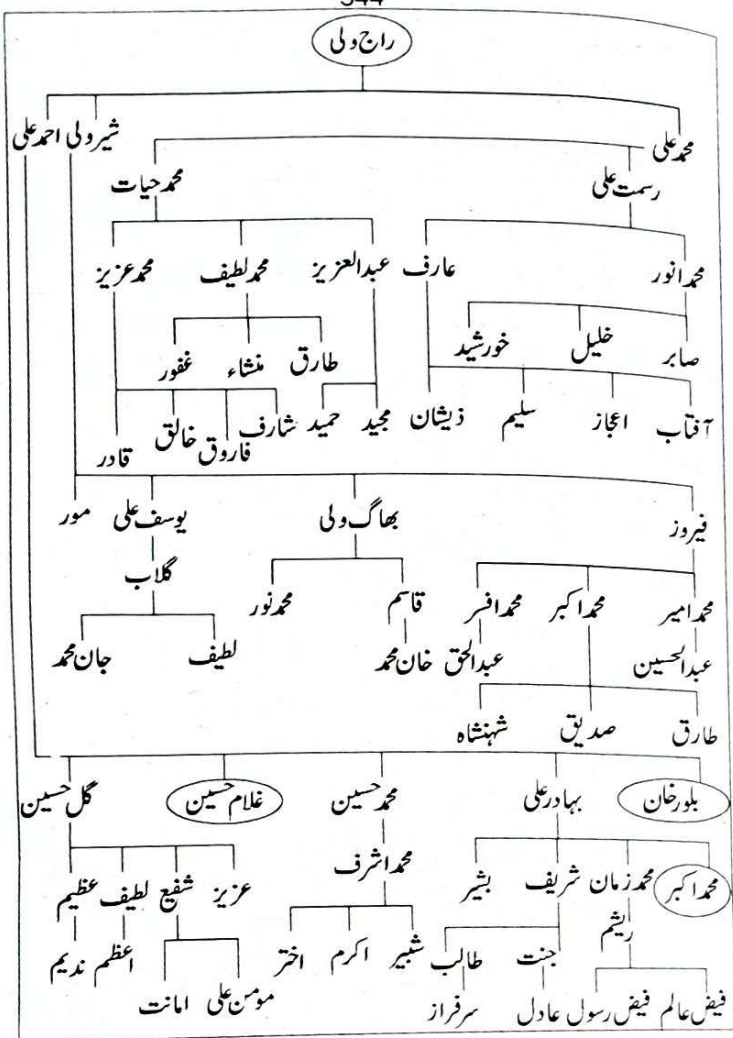 344
راج ولی
محمد علی شیر ولی احمد علی
رسمت علی محمد حیات
محمد انور عارف عبدالعزیز محمد لطیف محمد عزیز
صابر خلیل خورشید طارق منشاء غفور
آفتاب اعجاز سلیم ذیشان مجید حمید شارف فاروق خالق قادر
فیروز بھاگ ولی یوسف علی مور
گلاب
محمد امیر محمد اکبر محمد افسر قاسم محمد نور
عبدالحسین عبدالحق خان محمد لطیف جان محمد
طارق صدیق شہنشاہ
بلور خان بہادر علی محمد حسین غلام حسین گل حسین
محمد اشرف
محمد اکبر محمد زمان شریف بشیر عزیز شفیع لطیف عظیم
ریشم
جنت طالب شبیر اکرم اختر اعظم ندیم
فیض عالم فیض رسول عادل سرفراز مومن علی امانت